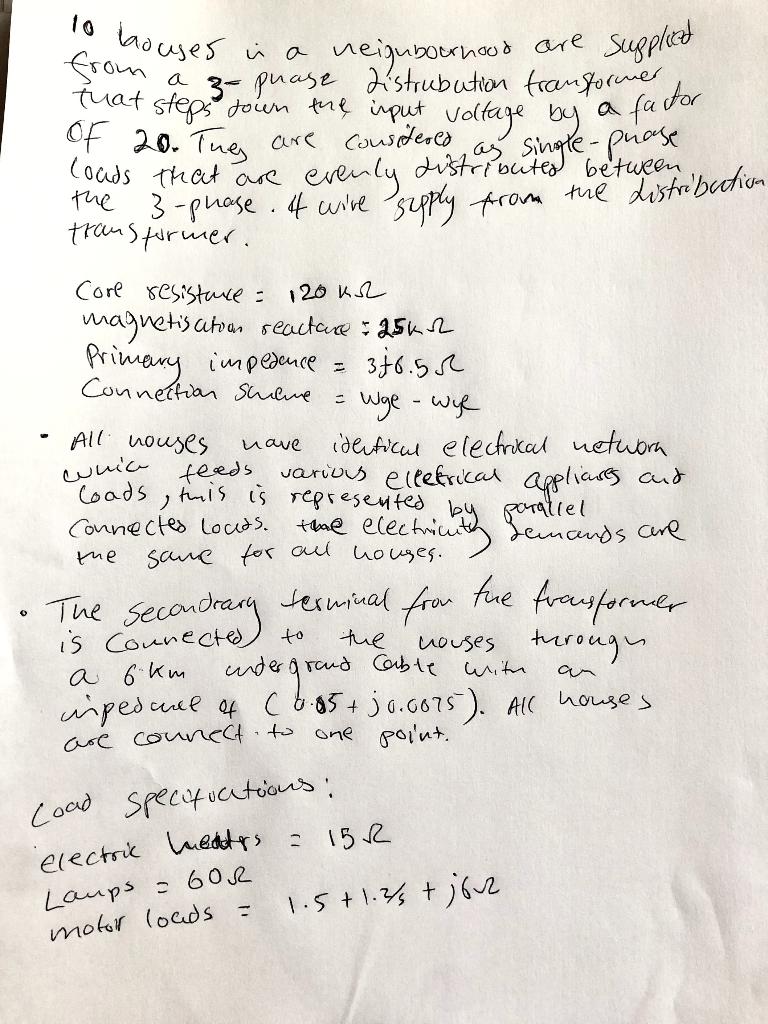 10 houses in a neighbourhood are supplied
from a 3-phase distrubution transformer
that steps down the input voltage by a factor
OF 20. They are considered as single-phase
loads that are evenly distributed between
the 3-phase. 4 wire supply from the distribution
transformer.
Core resistance = 120 kΩ
magnetisation reactance = 25kΩ
Primary impedance = 3+j6.5Ω
Connection Scheme = wye - wye
• All houses have identical electrical network
which feeds various electrical appliances and
loads, this is represented by parallel
connected loads. the electricity demands are
the same for all houses.
• The secondrary terminal from the transformer
is connected to the houses through
a 6 km underground cable with an
impedance of (0.05 + j0.0075). All houses
are connect to one point.
Load specifications:
electric heaters = 15Ω
Lamps = 60Ω
motor loads = 1.5 + 1.2/s + j6Ω